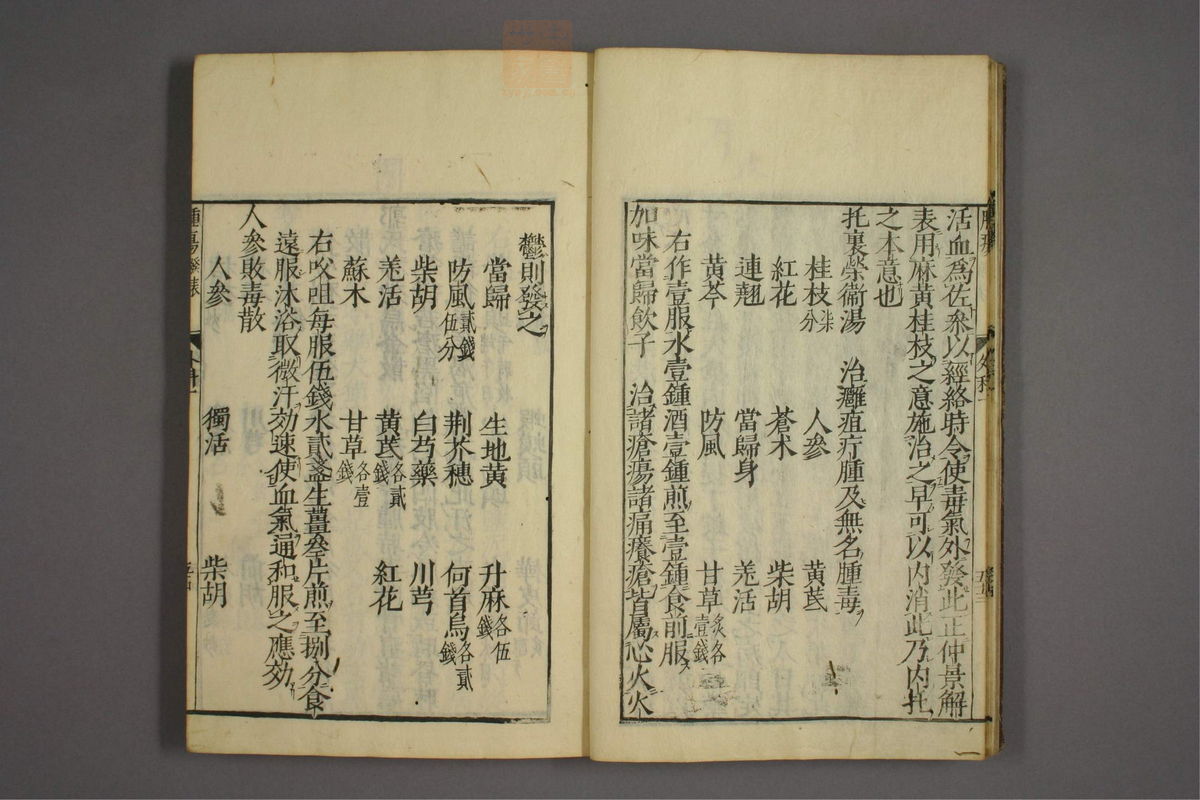 活血爲佐叅以經絡時令使毒氣外發此正仲景解
表用麻黃桂枝之意施治之早可以内消此乃内托
之本意也
托裏榮衞湯　治癰疽疔腫及無名腫毒
桂枝柒分　人參　黃芪
紅花　蒼术　柴胡
連翹　當歸身　羌活
黃芩　防風　甘草炙各壹錢
右作壹服水壹鍾酒壹鍾煎至壹鍾食前服
加味當歸飲子　治諸瘡瘍諸痛癢瘡皆屬心火火
鬱則發之
當歸　生地黃　升麻各伍錢
防風貳錢伍分　荆芥穗　何首烏各貳錢
柴胡　白芍藥　川芎
羌活　黃芪各貳錢　紅花
蘇木　甘草各壹錢
右㕮咀每服伍錢水貳盞生薑叄片煎至捌分食
遠服沐浴取微汗効速使血氣通和服之應効
人參敗毒散
人參　獨活　柴胡